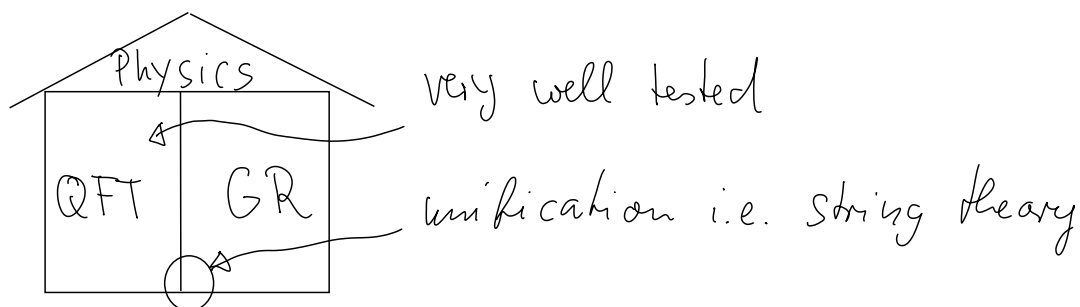 Physics
very well tested
QFT GR
unification i.e. string theory